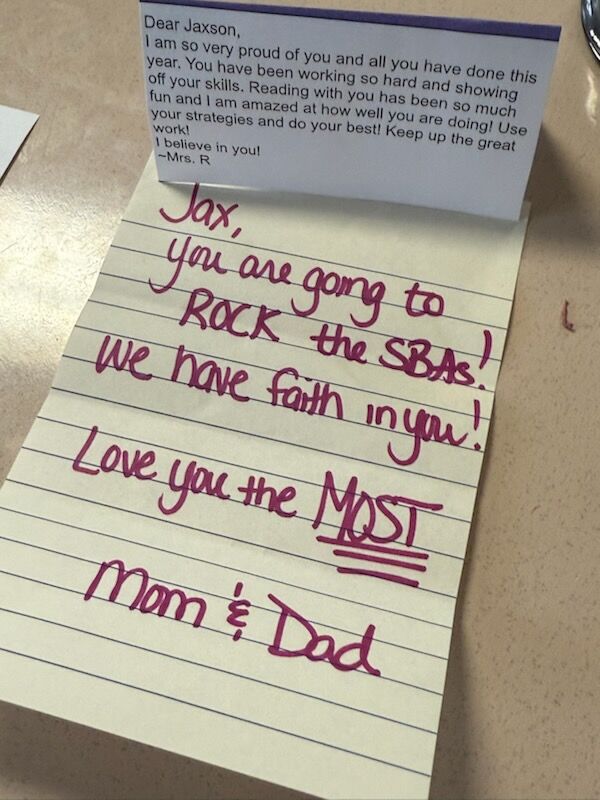 Dear Jaxson,
I am so very proud of you and all you have done this
year. You have been working so hard and showing
off your skills. Reading with you has been so much
fun and I am amazed at how well you are doing! Use
your strategies and do your best! Keep up the great
work!
I believe in you!
~Mrs. R
Jax,
you are going to
ROCK the SBAs!
We have faith in you!
Love you the MOST
Mom & Dad